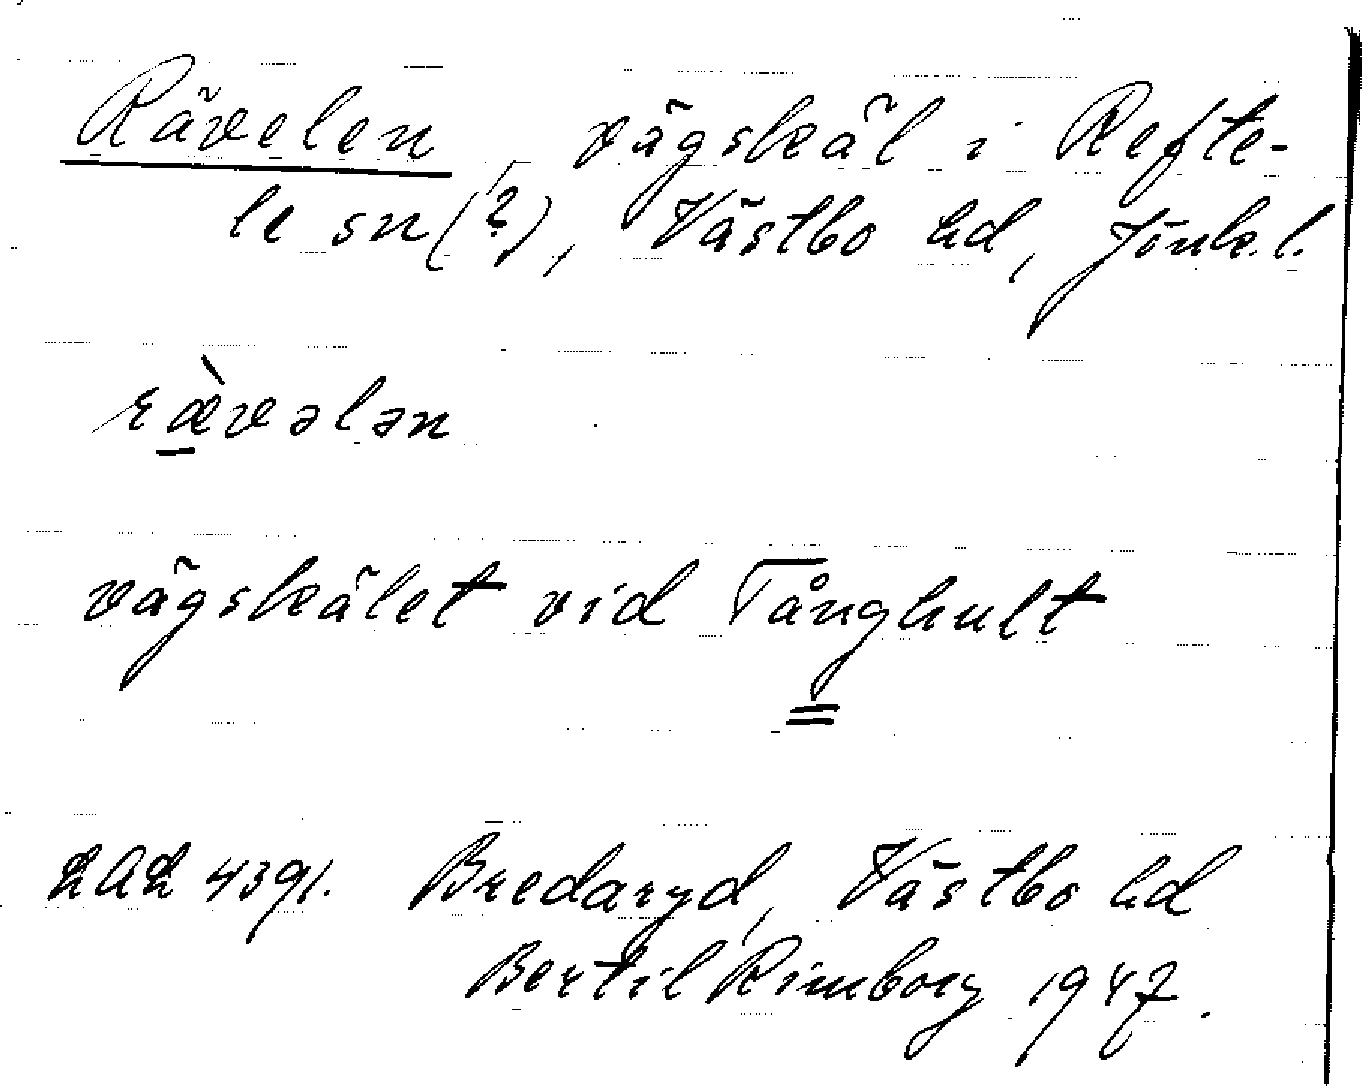 Rävelen, vägskäl i Refte-
le sn (?), Västbo hd, Jönk. l.
ræ̀vələn
vägskälet vid Tånghult
LAL 4391. Bredaryd, Västbo hd
Bertil Rimborg 1947.